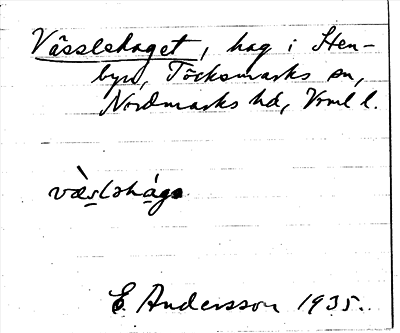 Vässlehaget, hag i Sten-
byn, Töcksmarks sn,
Nordmarks hd, Vrml l.
E. Andersson 1935.